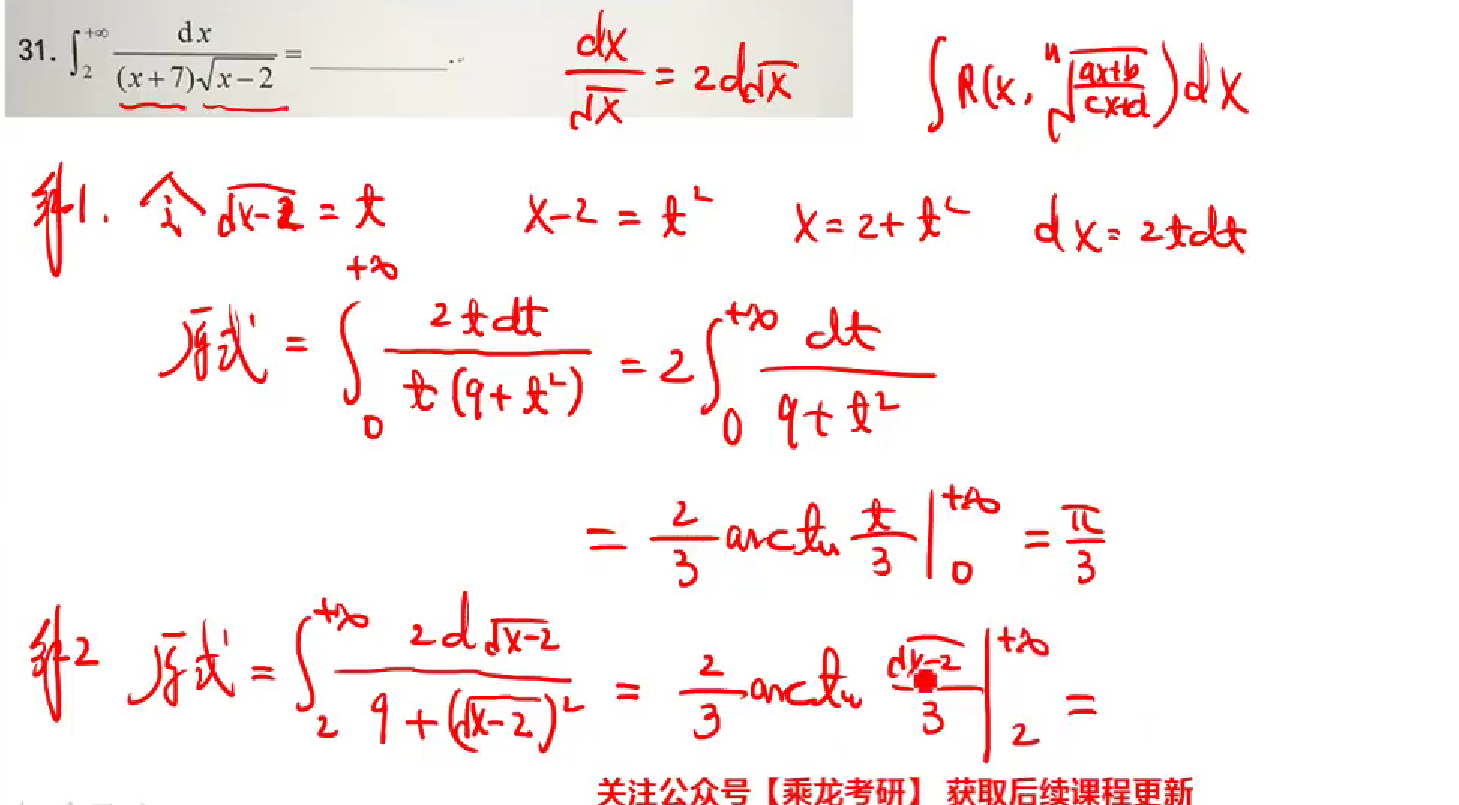 31. ∫₂^{+∞} dx / ((x+7)√(x−2)) = ________.
dx/√x = 2d√x
∫R(x, ⁿ√((ax+b)/(cx+d)))dx
解1. 令 √(x−2) = t  x−2 = t²  x = 2+t²  dx = 2tdt
原式 = ∫₀^{+∞} 2tdt / (t(9+t²)) = 2∫₀^{+∞} dt / (9+t²)
= 2/3 arctan t/3 |₀^{+∞} = π/3
解2 原式 = ∫₂^{+∞} 2d√(x−2) / (9+(√(x−2))²) = 2/3 arctan √(x−2)/3 |₂^{+∞} =
关注公众号【乘龙考研】 获取后续课程更新